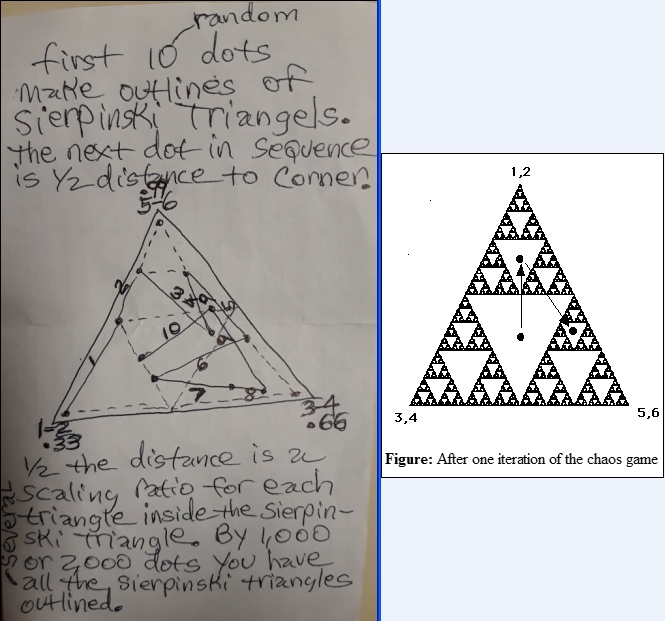 random
first 10 dots
make outlines of
Sierpinski Triangels.
The next dot in sequence
is 1/2 distance to corner.
.99
5-6
2
3
4
5
9
10
1
6
7
8
1-2
.33
3-4
.66
1/2 the distance is a
scaling ratio for each
several
triangle inside the Sierpin-
ski triangle. By 1,000
or 2,000 dots you have
all the Sierpinski triangles
outlined.
1,2
3,4
5,6
Figure: After one iteration of the chaos game